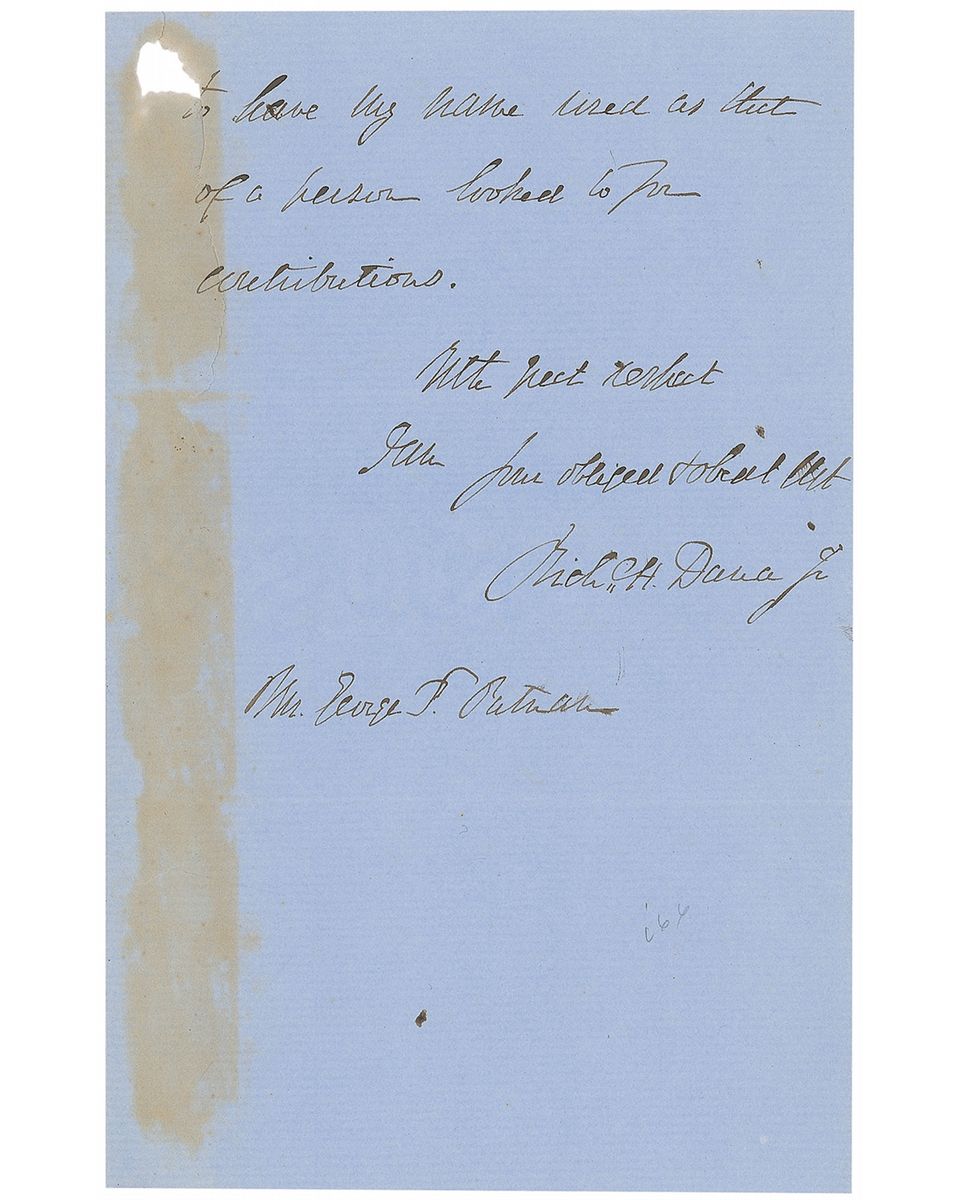 to have my name used as that
of a person looked to for
contributions.
With great respect
I am your obliged & obedt svt
Rich. H. Dana Jr
Mr. George P. Putnam